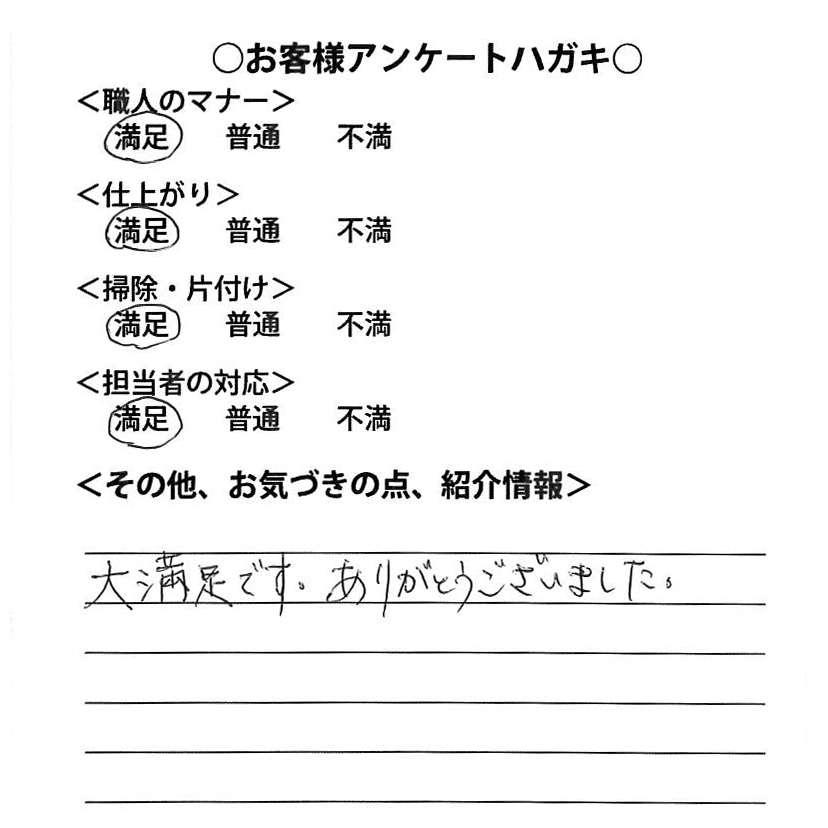 ○お客様アンケートハガキ○
＜職人のマナー＞
満足 普通 不満
＜仕上がり＞
満足 普通 不満
＜掃除・片付け＞
満足 普通 不満
＜担当者の対応＞
満足 普通 不満
＜その他、お気づきの点、紹介情報＞
大満足です。ありがとうございました。